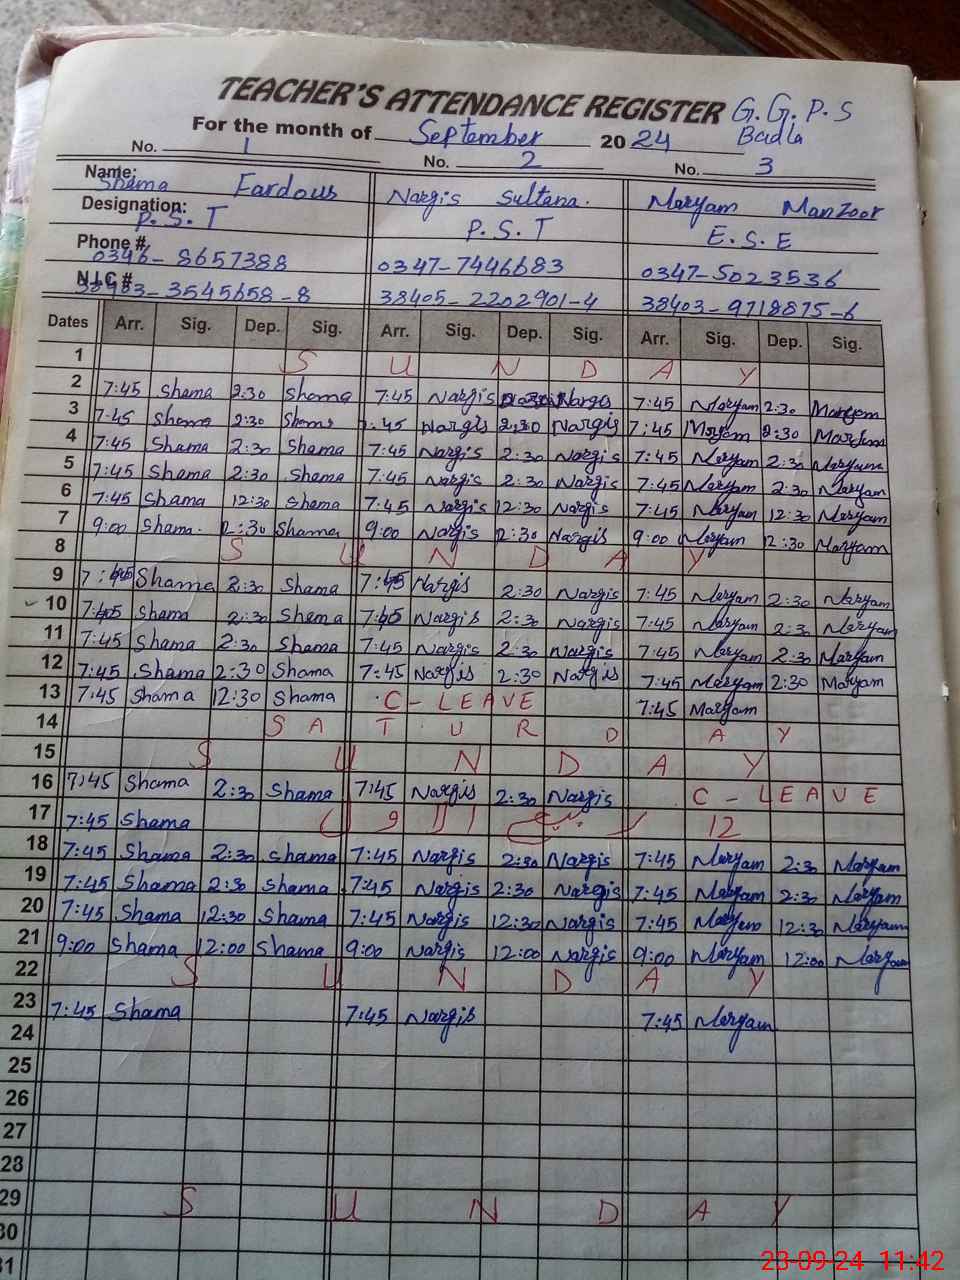 TEACHER'S ATTENDANCE REGISTER G.G.P.S
For the month of September 2024 Badla
No. 1 No. 2 No. 3
Name: Shama Fardous Nargis Sultana. Maryam Manzoor
Designation: P.S.T P.S.T E.S.E
Phone # 0346-8657388 0347-7446683 0347-5023536
N.I.C # 3545658-8 38405-2202901-4 38403-9718875-6
Dates Arr. Sig. Dep. Sig. Arr. Sig. Dep. Sig. Arr. Sig. Dep. Sig.
1 SUNDAY
2 7:45 Shama 2:30 Shama 7:45 Nargis Nargis 7:45 Maryam 2:30 Maryam
3 7:45 Shama 2:30 Shama 7:45 Nargis 2:30 Nargis 7:45 Maryam 2:30 Maryam
4 7:45 Shama 2:30 Shama 7:45 Nargis 2:30 Nargis 7:45 Maryam 2:30 Maryam
5 7:45 Shama 2:30 Shama 7:45 Nargis 2:30 Nargis 7:45 Maryam 2:30 Maryam
6 7:45 Shama 12:30 Shama 7:45 Nargis 12:30 Nargis 7:45 Maryam 12:30 Maryam
7 9:00 Shama. 12:30 Shama 9:00 Nargis 12:30 Nargis 9:00 Maryam 12:30 Maryam
8 SUNDAY
9 7:45 Shama 2:30 Shama 7:45 Nargis 2:30 Nargis 7:45 Maryam 2:30 Maryam
10 7:45 Shama 2:30 Shama 7:45 Nargis 2:30 Nargis 7:45 Maryam 2:30 Maryam
11 7:45 Shama 2:30 Shama 7:45 Nargis 2:30 Nargis 7:45 Maryam 2:30 Maryam
12 7:45 Shama 2:30 Shama 7:45 Nargis 2:30 Nargis 7:45 Maryam 2:30 Maryam
13 7:45 Shama 12:30 Shama C-LEAVE 7:45 Maryam
14 SATURDAY
15 SUNDAY
16 7:45 Shama 2:30 Shama 7:45 Nargis 2:30 Nargis C-LEAVE
17 7:45 Shama 12 ربیع الاول
18 7:45 Shama 2:30 Shama 7:45 Nargis 2:30 Nargis 7:45 Maryam 2:30 Maryam
19 7:45 Shama 2:30 Shama 7:45 Nargis 2:30 Nargis 7:45 Maryam 2:30 Maryam
20 7:45 Shama 12:30 Shama 7:45 Nargis 12:30 Nargis 7:45 Maryam 12:30 Maryam
21 9:00 Shama 12:00 Shama 9:00 Nargis 12:00 Nargis 9:00 Maryam 12:00 Maryam
22 SUNDAY
23 7:45 Shama 7:45 Nargis 7:45 Maryam
24
25
26
27
28
29 SUNDAY
30
31
23-09-24 11:42